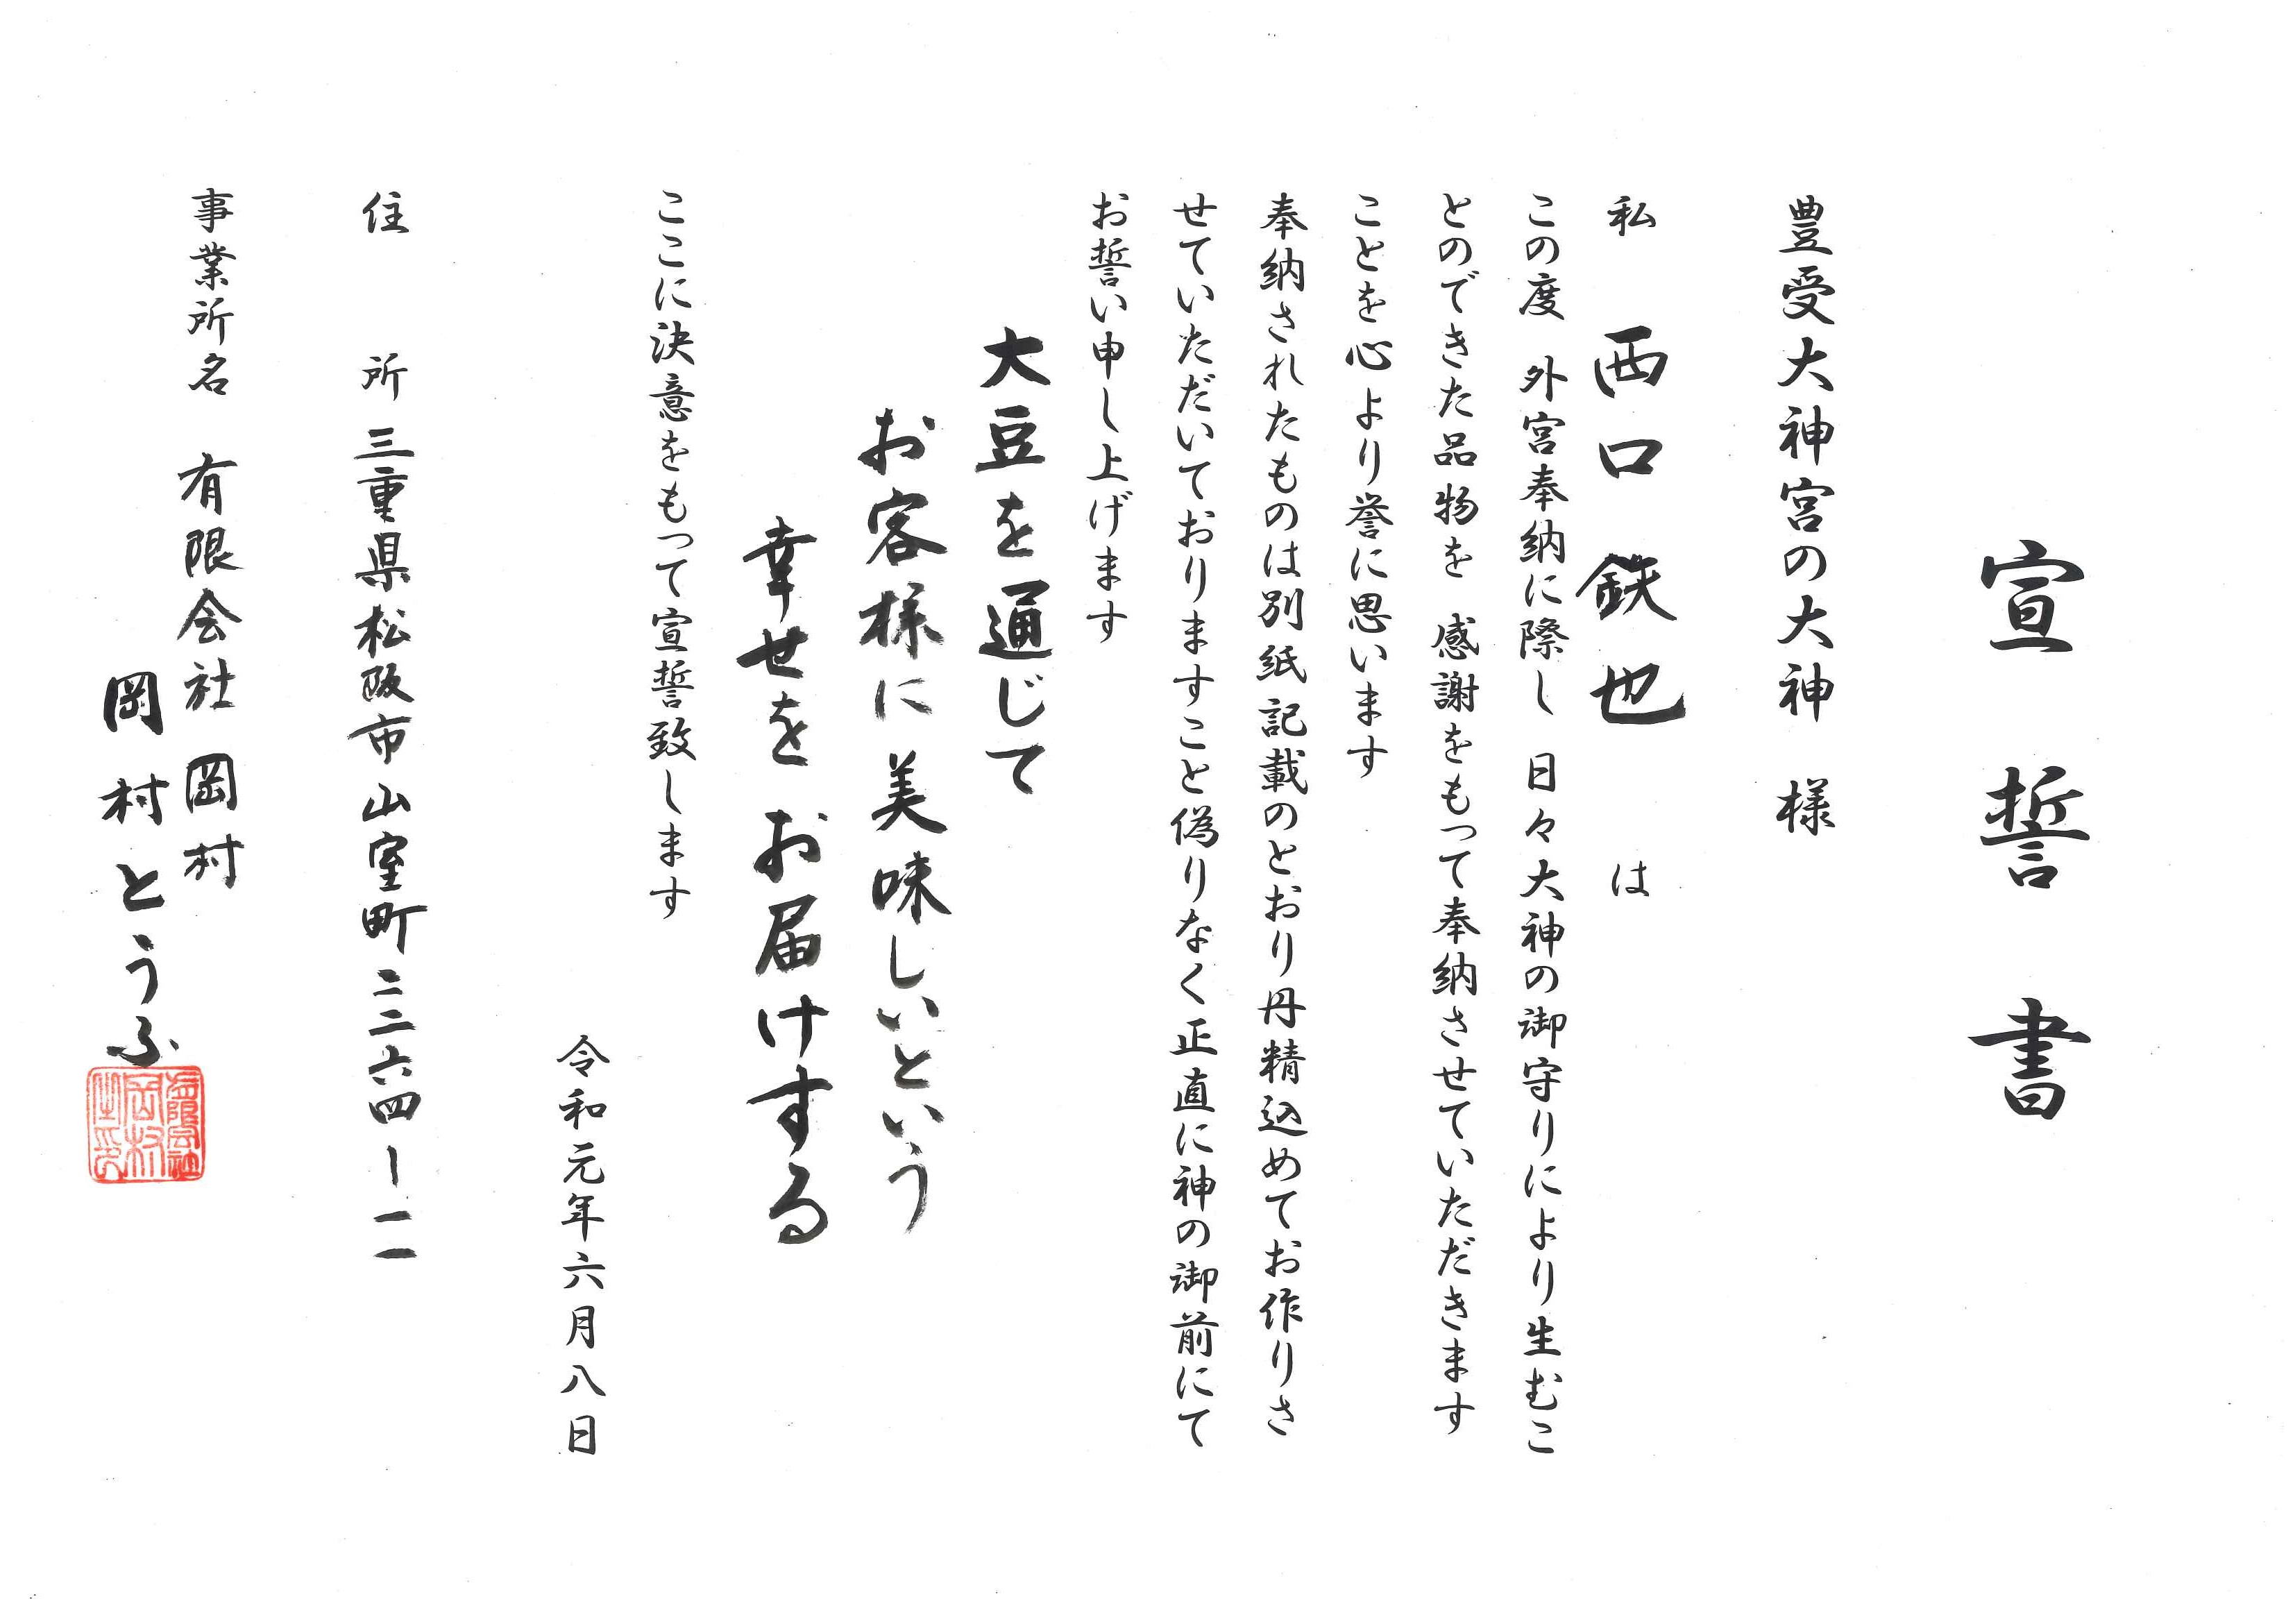 宣誓書
豊受大神宮の大神 様
私 西口鉄也 は
この度 外宮奉納に際し 日々大神の御守りにより生むこ
とのできた品物を 感謝をもって奉納させていただきます
ことを心より誉に思います
奉納されたものは別紙記載のとおり丹精込めてお作りさ
せていただいておりますこと偽りなく正直に神の御前にて
お誓い申し上げます
大豆を通じて
お客様に 美味しいという
幸せを お届けする
ここに決意をもって宣誓致します
令和元年六月八日
住 所 三重県松阪市山室町二二六四ー一一
事業所名 有限会社 岡村
岡村とうふ
有限会社
岡村
之印